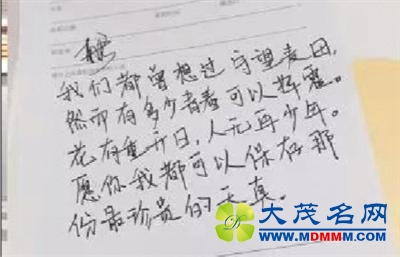 我们都曾想过守望麦田,
然而有多少青春可以挥霍。
花有重开日,人无再少年。
愿你我都可以保存那
份最珍贵的天真。
大茂名网
www.MDMMM.com